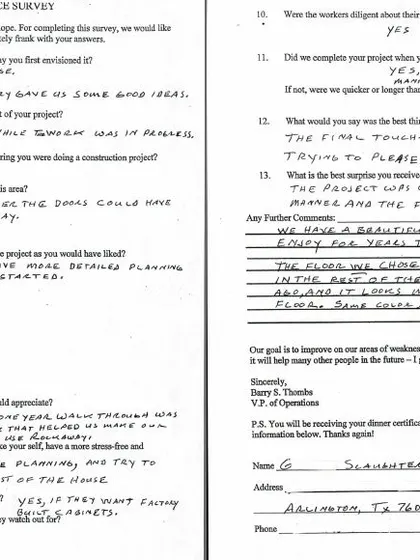 CE SURVEY
ope. For completing this survey, we would like
tely frank with your answers.
ay you first envisioned it?
SE.
RY GAVE US SOME GOOD IDEAS.
t of your project?
WHILE WORK WAS IN PROGRESS.
ring you were doing a construction project?
is area?
ER THE DOORS COULD HAVE
AY.
e project as you would have liked?
VE MORE DETAILED PLANNING
STARTED.
uld appreciate?
ONE YEAR WALK THROUGH WAS
THAT HELPED US MAKE OUR
USE ROCKAWAY!
ke your self, have a more stress-free and
E PLANNING, AND TRY TO
ST OF THE HOUSE
? YES, IF THEY WANT FACTORY
BUILT CABINETS.
y watch out for?
10. Were the workers diligent about their
YES
11. Did we complete your project when y
YES,
MANN
If not, were we quicker or longer than
12. What would you say was the best thin
THE FINAL TOUCH
TRYING TO PLEASE
13. What is the best surprise you receive
THE PROJECT WAS
MANNER AND THE F
Any Further Comments:
WE HAVE A BEAUTIFU
ENJOY FOR YEARS T
THE FLOOR WE CHOSE
IN THE REST OF THE
AGO, AND IT LOOKS
FLOOR. SAME COLOR,
Our goal is to improve on our areas of weakness
it will help many other people in the future – I
Sincerely,
Barry S. Thombs
V.P. of Operations
P.S. You will be receiving your dinner certifica
information below. Thanks again!
Name G SLAUGHTER
Address
ARLINGTON, TX 760
Phone